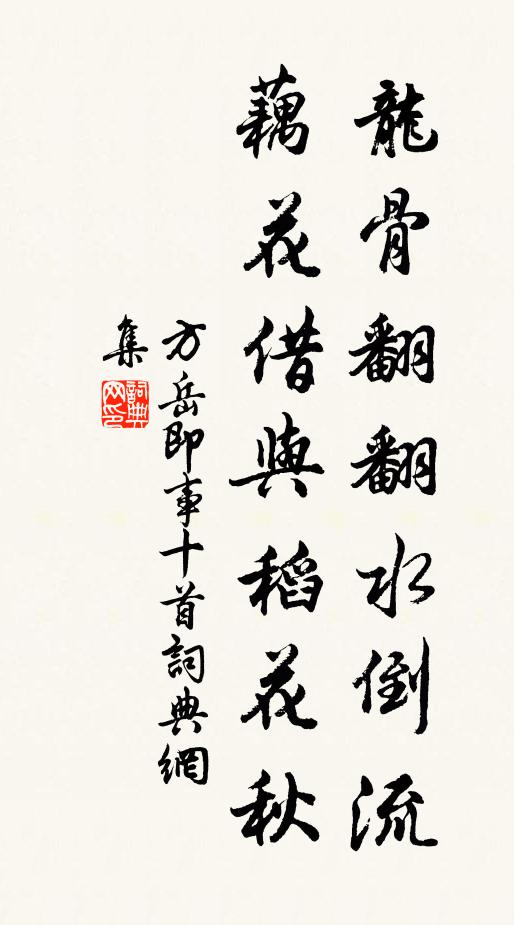 龍骨翻翻水倒流
藕花借與稻花秋
方岳即事十首詞典網
集
詞典網印